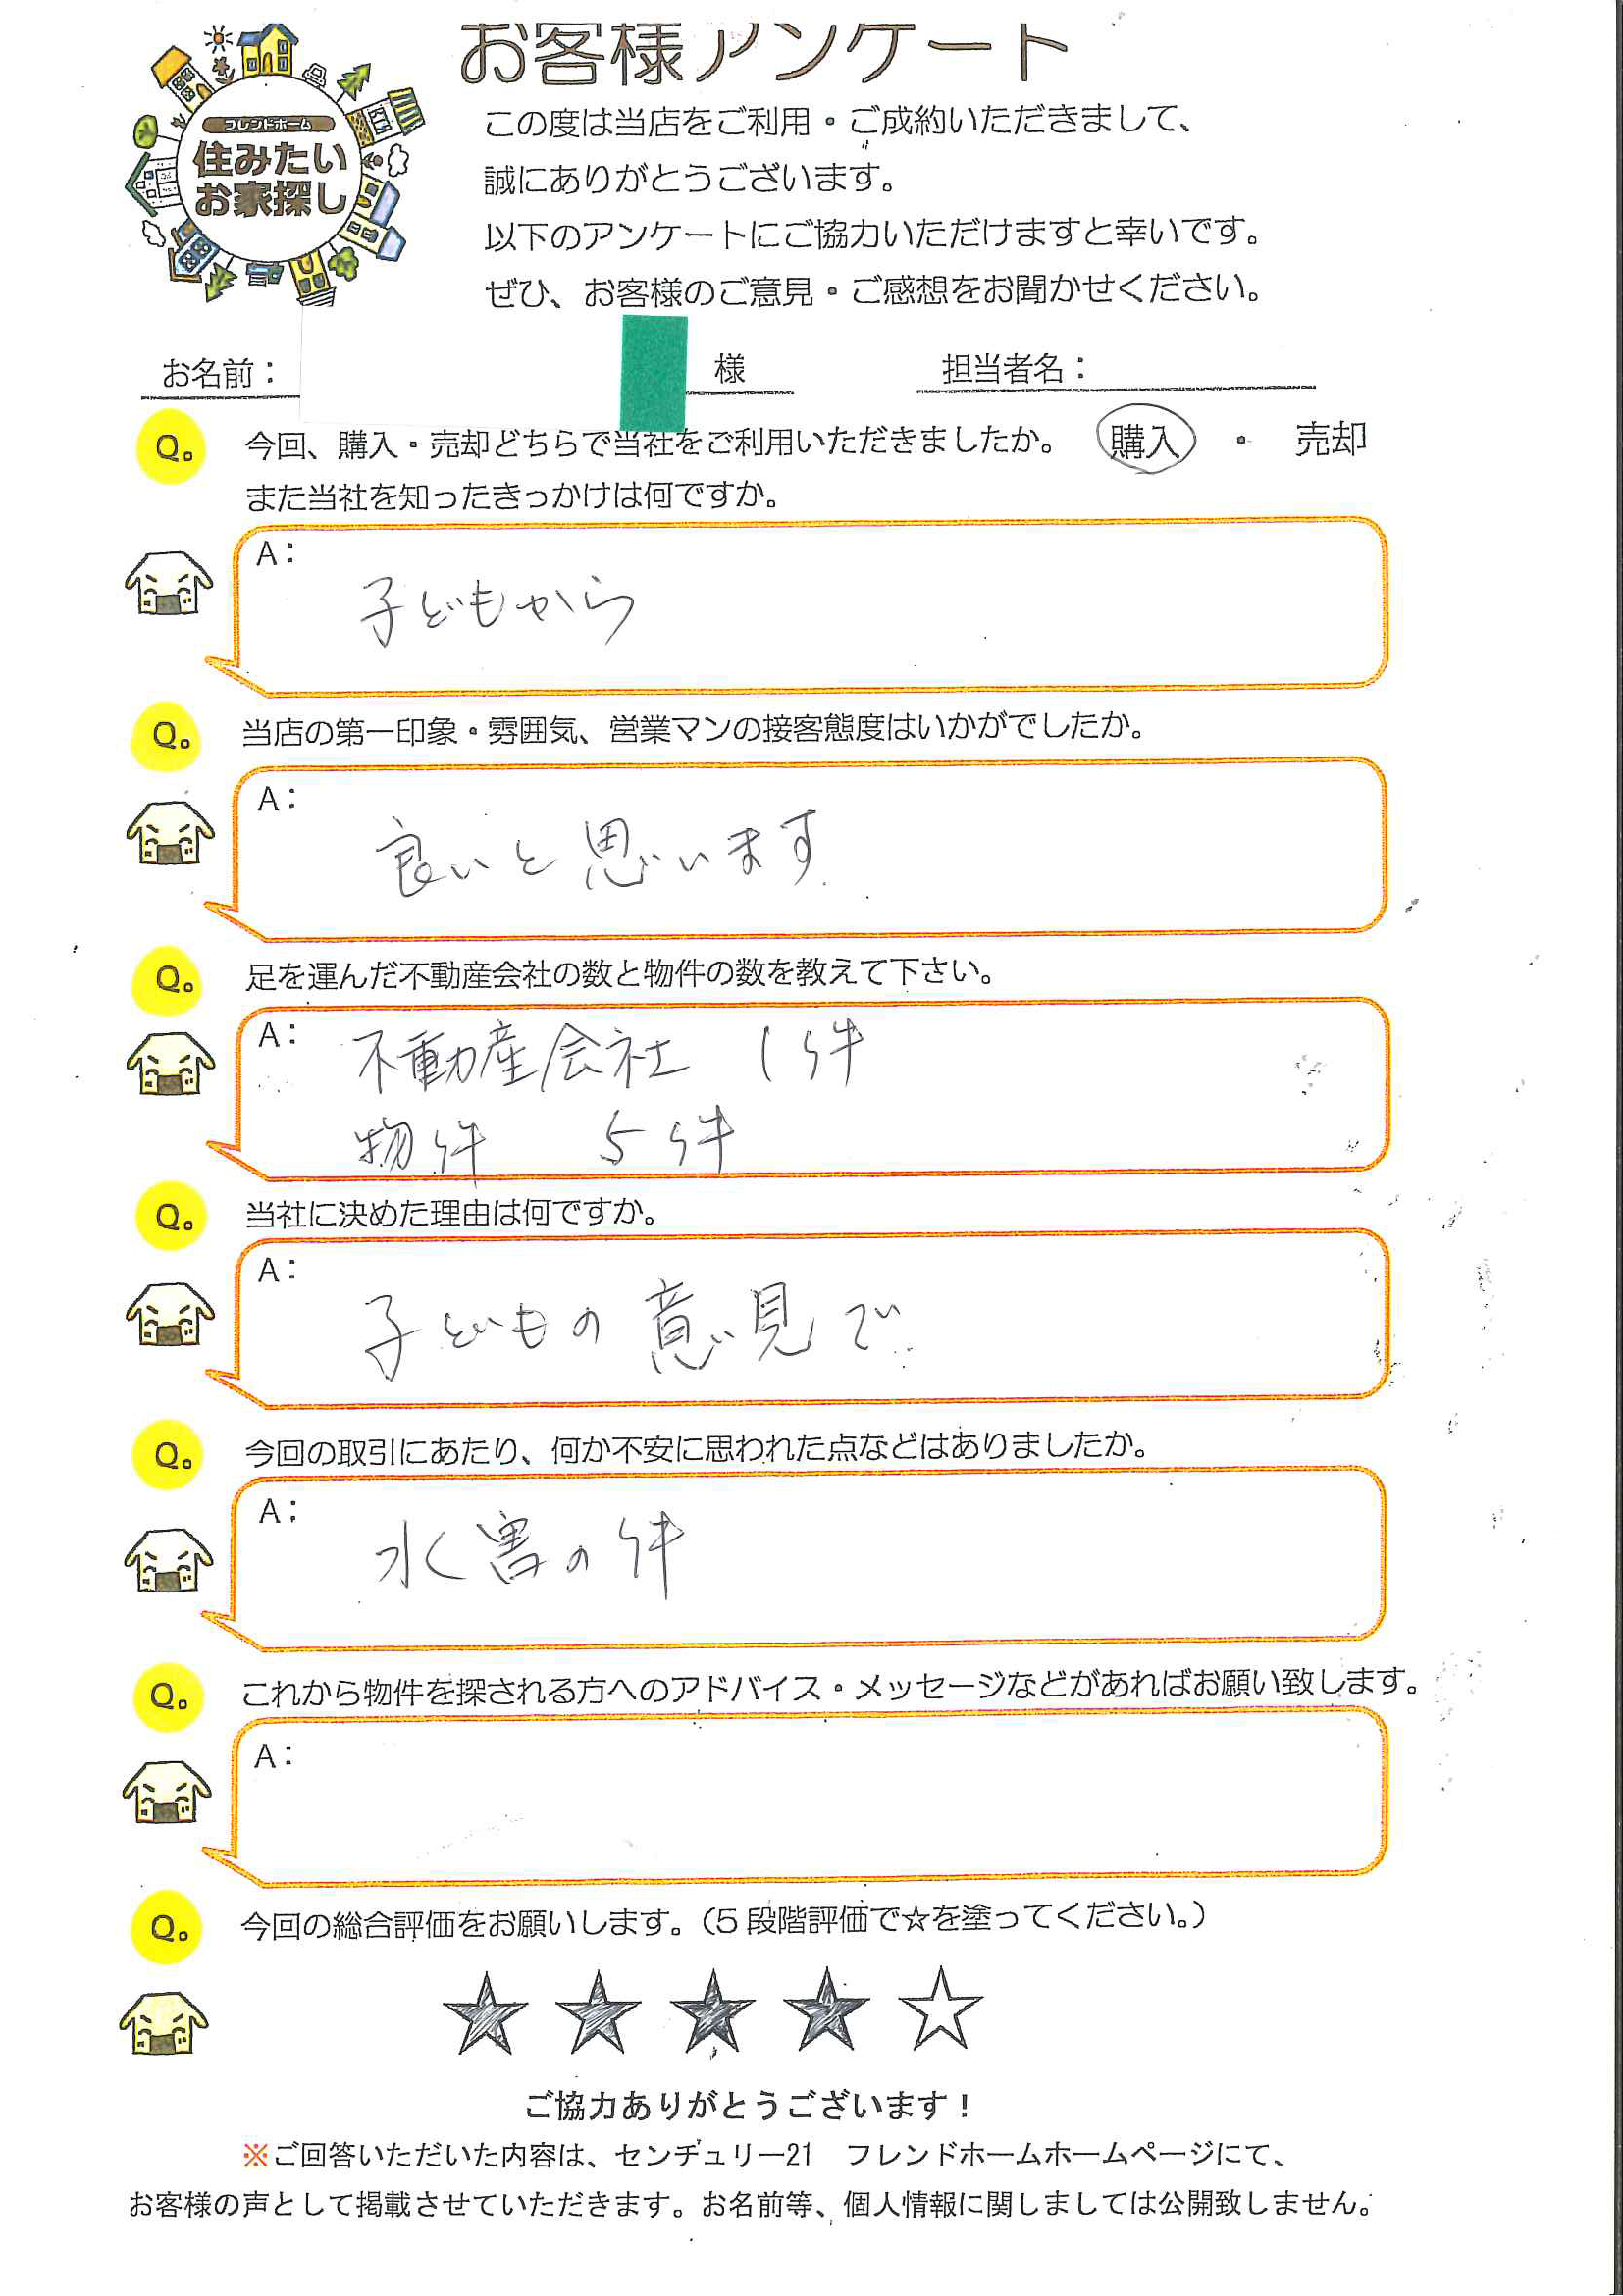 お客様アンケート
フレンドホーム
住みたい
お家探し
この度は当店をご利用・ご成約いただきまして、
誠にありがとうございます。
以下のアンケートにご協力いただけますと幸いです。
ぜひ、お客様のご意見・ご感想をお聞かせください。
お名前： 様 担当者名：
Q。 今回、購入・売却どちらで当社をご利用いただきましたか。 購入 ・ 売却
また当社を知ったきっかけは何ですか。
A：
子どもから
Q。 当店の第一印象・雰囲気、営業マンの接客態度はいかがでしたか。
A：
良いと思います
Q。 足を運んだ不動産会社の数と物件の数を教えて下さい。
A： 不動産会社 1件
物件 5件
Q。 当社に決めた理由は何ですか。
A：
子どもの意見で
Q。 今回の取引にあたり、何か不安に思われた点などはありましたか。
A：
水害の件
Q。 これから物件を探される方へのアドバイス・メッセージなどがあればお願い致します。
A：
Q。 今回の総合評価をお願いします。（5段階評価で☆を塗ってください。）
★★★★☆
ご協力ありがとうございます！
※ご回答いただいた内容は、センチュリー21 フレンドホームホームページにて、
お客様の声として掲載させていただきます。お名前等、個人情報に関しましては公開致しません。